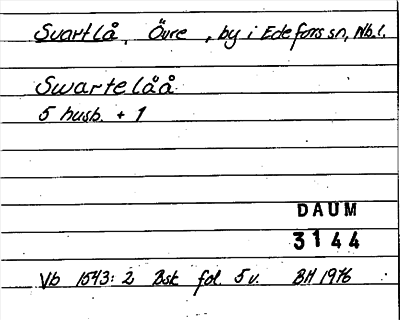 Svartlå, Övre, by i Edefors sn, Nb.l.
Swartelåå
5 husb. + 1
DAUM
3144
Vb 1543:2 Bsk fol. 5v. BH 1976